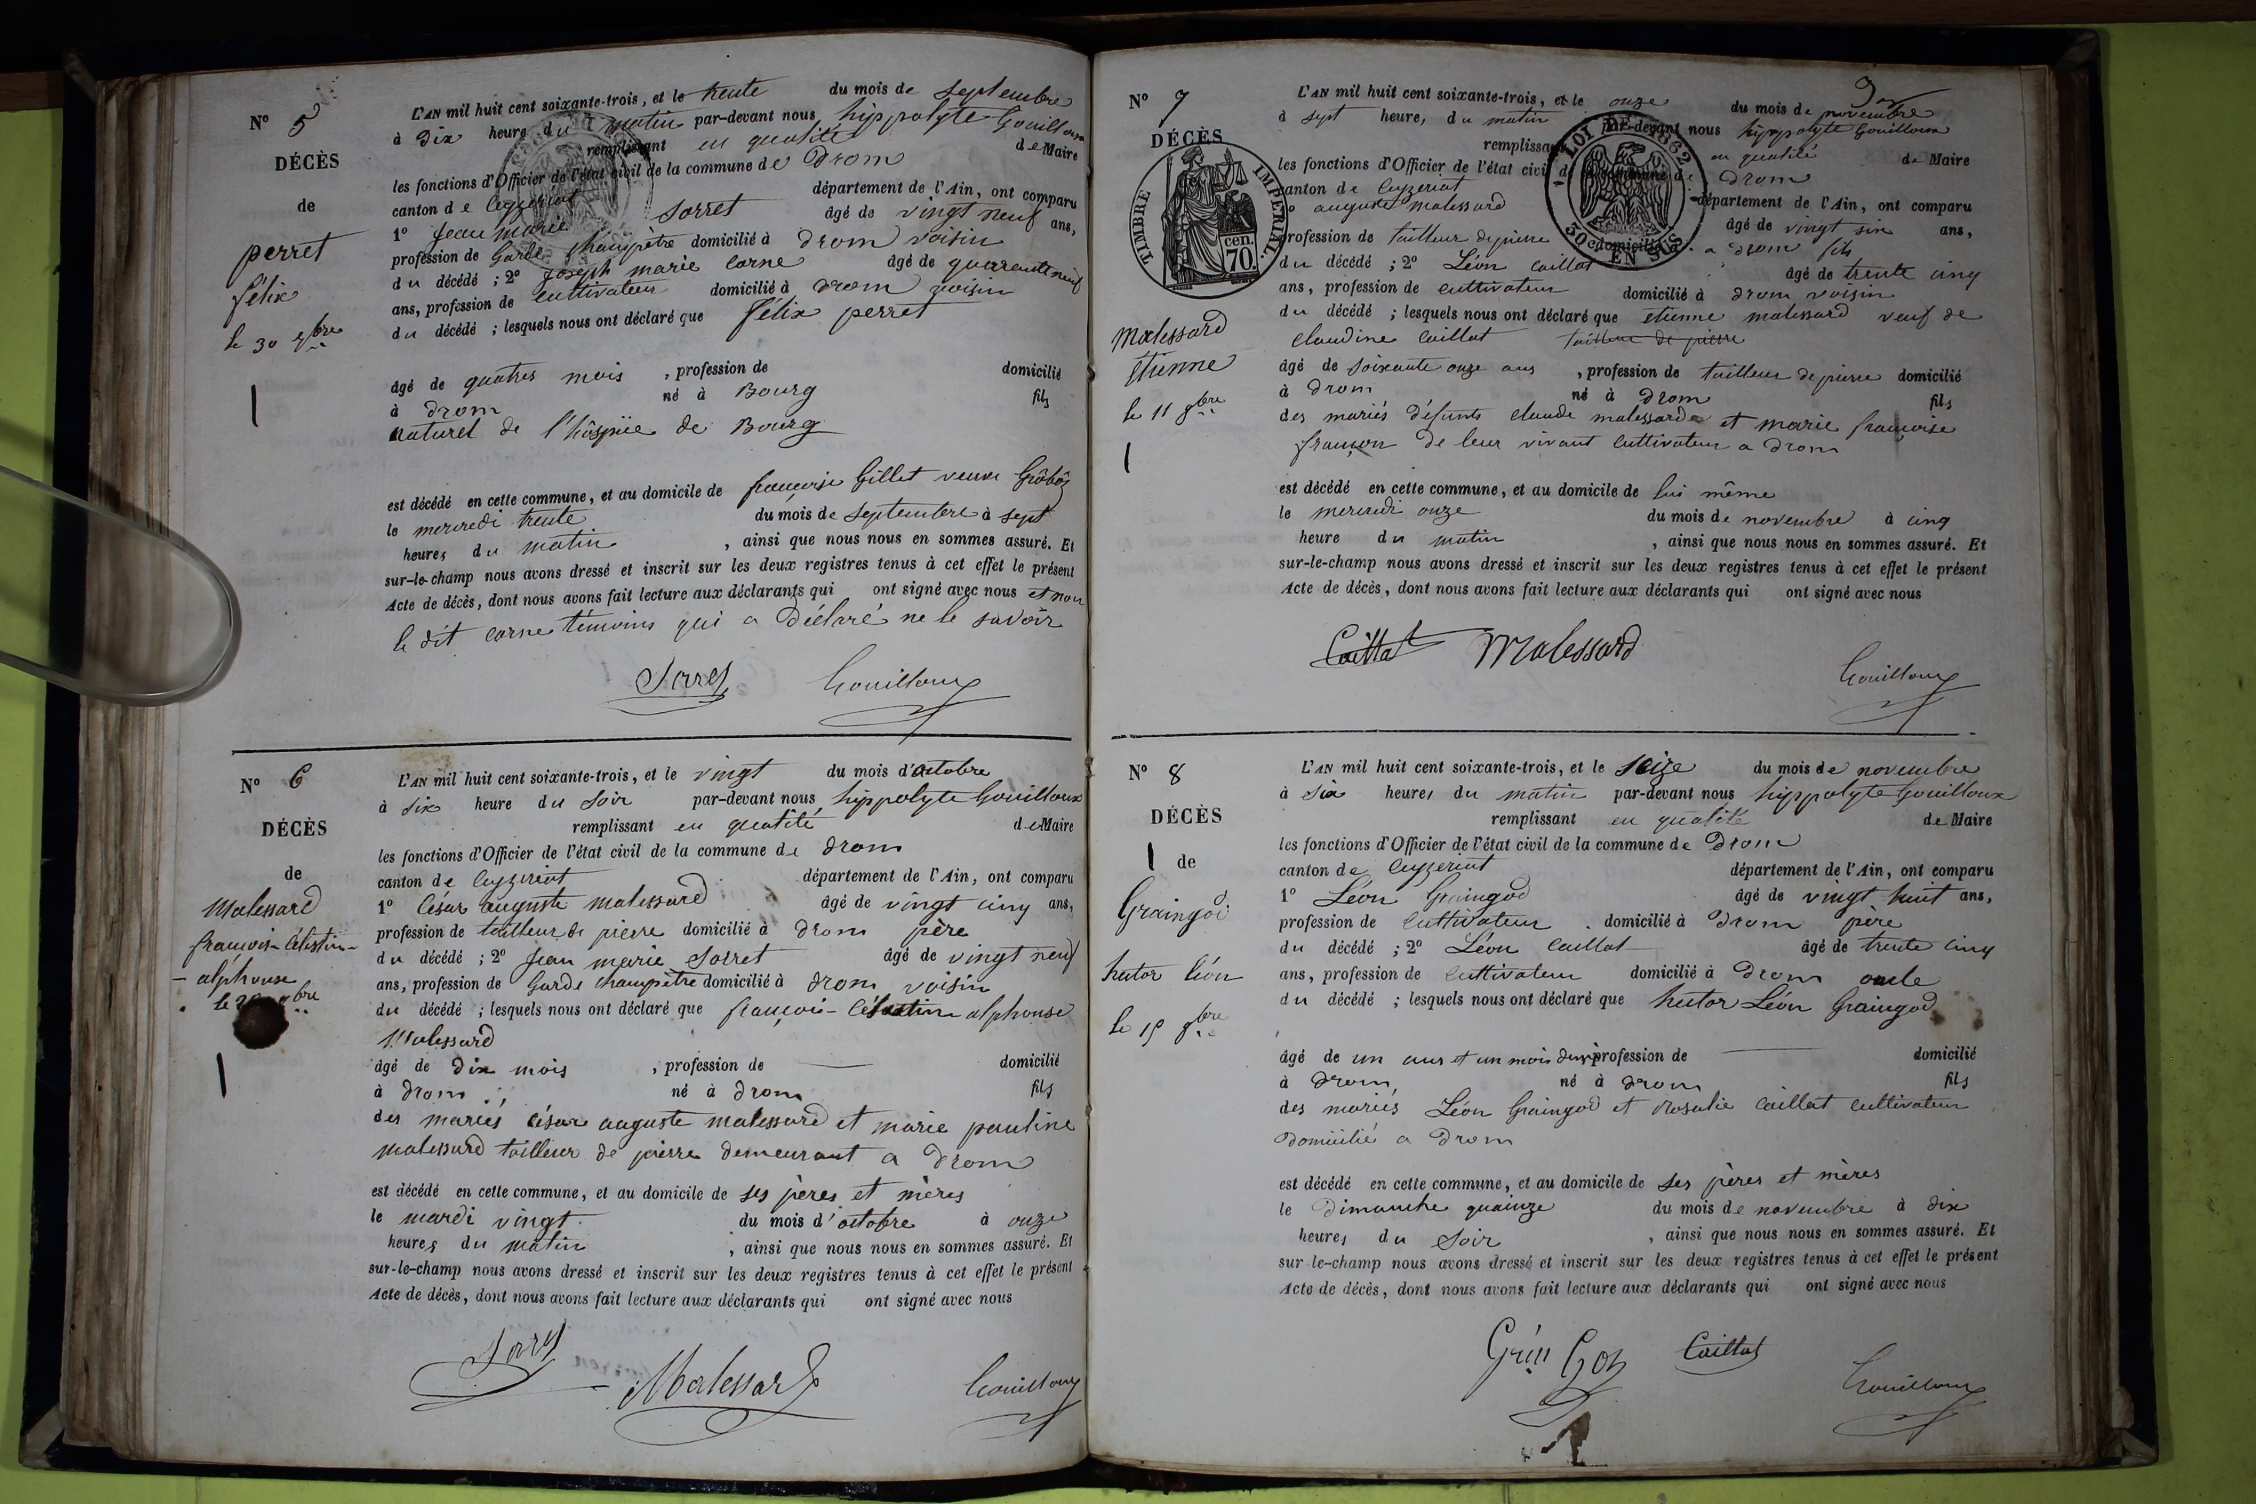 N° 5
DÉCÈS
de
perret
félix
le 30 7bre
L'AN mil huit cent soixante-trois, et le trente du mois de septembre
à dix heure du matin par-devant nous hippolyte Gouilloux
remplissant en qualité de Maire
les fonctions d'Officier de l'état civil de la commune de Drom
canton de Ceyzeriat département de l'Ain, ont comparu
1° Jean marie Sorret âgé de vingt neuf ans,
profession de Garde champètre domicilié à Drom voisin
du décédé ; 2° Joseph marie Carne âgé de quarante neuf
ans, profession de cultivateur domicilié à Drom voisin
du décédé ; lesquels nous ont déclaré que félix perret
âgé de quatres mois , profession de domicilié
à Drom né à Bourg fils
naturel de l'hôspice de Bourg
est décédé en cette commune, et au domicile de françoise Gillet veuve Grôbôz
le mercredi trente du mois de septembre à sept
heures du matin , ainsi que nous nous en sommes assuré. Et
sur-le-champ nous avons dressé et inscrit sur les deux registres tenus à cet effet le présent
Acte de décès, dont nous avons fait lecture aux déclarants qui ont signé avec nous et non
le dit Carne témoins qui a Déclaré ne le savoir
Sorret Gouilloux
N° 6
DÉCÈS
de
Malessard
françois-Célestin-
- alphonse
L'AN mil huit cent soixante-trois, et le vingt du mois d'octobre
à six heure du soir par-devant nous hippolyte Gouilloux
remplissant en qualité de Maire
les fonctions d'Officier de l'état civil de la commune de Drom
canton de Ceyzeriat département de l'Ain, ont comparu
1° César auguste malessard âgé de vingt cinq ans,
profession de tailleur de pierre domicilié à Drom père
du décédé ; 2° Jean marie Sorret âgé de vingt neuf
ans, profession de Garde champètre domicilié à Drom voisin
du décédé ; lesquels nous ont déclaré que françois-Célestin alphonse
Malessard
âgé de Dix mois , profession de — domicilié
à Drom né à Drom fils
des mariés César auguste malessard et marie pauline
malessard tailleur de pierre demeurant a Drom
est décédé en cette commune, et au domicile de ses pères et mères
le mardi vingt du mois d'octobre à onze
heures du matin , ainsi que nous nous en sommes assuré. Et
sur-le-champ nous avons dressé et inscrit sur les deux registres tenus à cet effet le présent
Acte de décès, dont nous avons fait lecture aux déclarants qui ont signé avec nous
Sorret Malessard Gouilloux
9
N° 7
DÉCÈS
TIMBRE IMPÉRIAL.
cen.
70.
LOI DE 1862
50 c.
EN SUS
malessard
Étienne
le 11 9bre
L'AN mil huit cent soixante-trois, et le onze du mois de novembre
à sept heure, du matin par-devant nous hippolyte Gouilloux
remplissant en qualité de Maire
les fonctions d'Officier de l'état civil de la commune de Drom
canton de Ceyzeriat département de l'Ain, ont comparu
1° auguste malessard âgé de vingt six ans,
profession de tailleur de pierre domicilié à Drom fils
du décédé ; 2° Léon Caillat âgé de trente cinq
ans, profession de cultivateur domicilié à Drom voisin
du décédé ; lesquels nous ont déclaré que étienne malessard veuf de
Claudine Caillat tailleur de pierre
âgé de soixante onze ans , profession de tailleur de pierre domicilié
à Drom né à Drom fils
des mariés défunts claude malessard et marie françoise
françon de leur vivant cultivateur a Drom
est décédé en cette commune, et au domicile de lui même
le mercredi onze du mois de novembre à cinq
heure du matin , ainsi que nous nous en sommes assuré. Et
sur-le-champ nous avons dressé et inscrit sur les deux registres tenus à cet effet le présent
Acte de décès, dont nous avons fait lecture aux déclarants qui ont signé avec nous
Caillat Malessard Gouilloux
N° 8
DÉCÈS
de
Graingod
hector léon
le 15 9bre
L'AN mil huit cent soixante-trois, et le Seize du mois de novembre
à six heures du matin par-devant nous hippolyte Gouilloux
remplissant en qualité de Maire
les fonctions d'Officier de l'état civil de la commune de Drom
canton de Ceyzeriat département de l'Ain, ont comparu
1° Léon Graingod âgé de vingt huit ans,
profession de cultivateur domicilié à Drom père
du décédé ; 2° Léon Caillat âgé de trente cinq
ans, profession de cultivateur domicilié à Drom oncle
du décédé ; lesquels nous ont déclaré que hector Léon Graingod
âgé de un ans et un mois , profession de — domicilié
à Drom né à Drom fils
des mariés Léon Graingod et Rosalie Caillat cultivateur
Domicilié a Drom
est décédé en cette commune, et au domicile de ses pères et mères
le Dimanche quainze du mois de novembre à dix
heures du soir , ainsi que nous nous en sommes assuré. Et
sur-le-champ nous avons dressé et inscrit sur les deux registres tenus à cet effet le présent
Acte de décès, dont nous avons fait lecture aux déclarants qui ont signé avec nous
Grin Goz Caillat Gouilloux